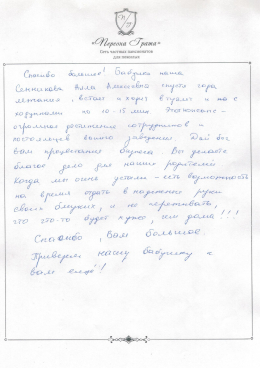 «Персона Грата»
Сеть частных пансионатов
для пожилых
Спасибо большое! Бабушка наша
Алла Алексеевна спустя года
лежания, встает и ходит в туалет и на с
ходунками по 10-15 мин
огромная сотрудников и
вашего заведения. Дай бог
вам процветания бизнеса. Вы делаете
благое дело для наших родителей
Когда мы очень устали - есть возможность
на время отдать в надежные руки
своих близких, и не переживать,
что что-то будет хуже, чем дома!!!
Спасибо, Вам большое.
Привезем нашу бабушку к
вам ещё!!